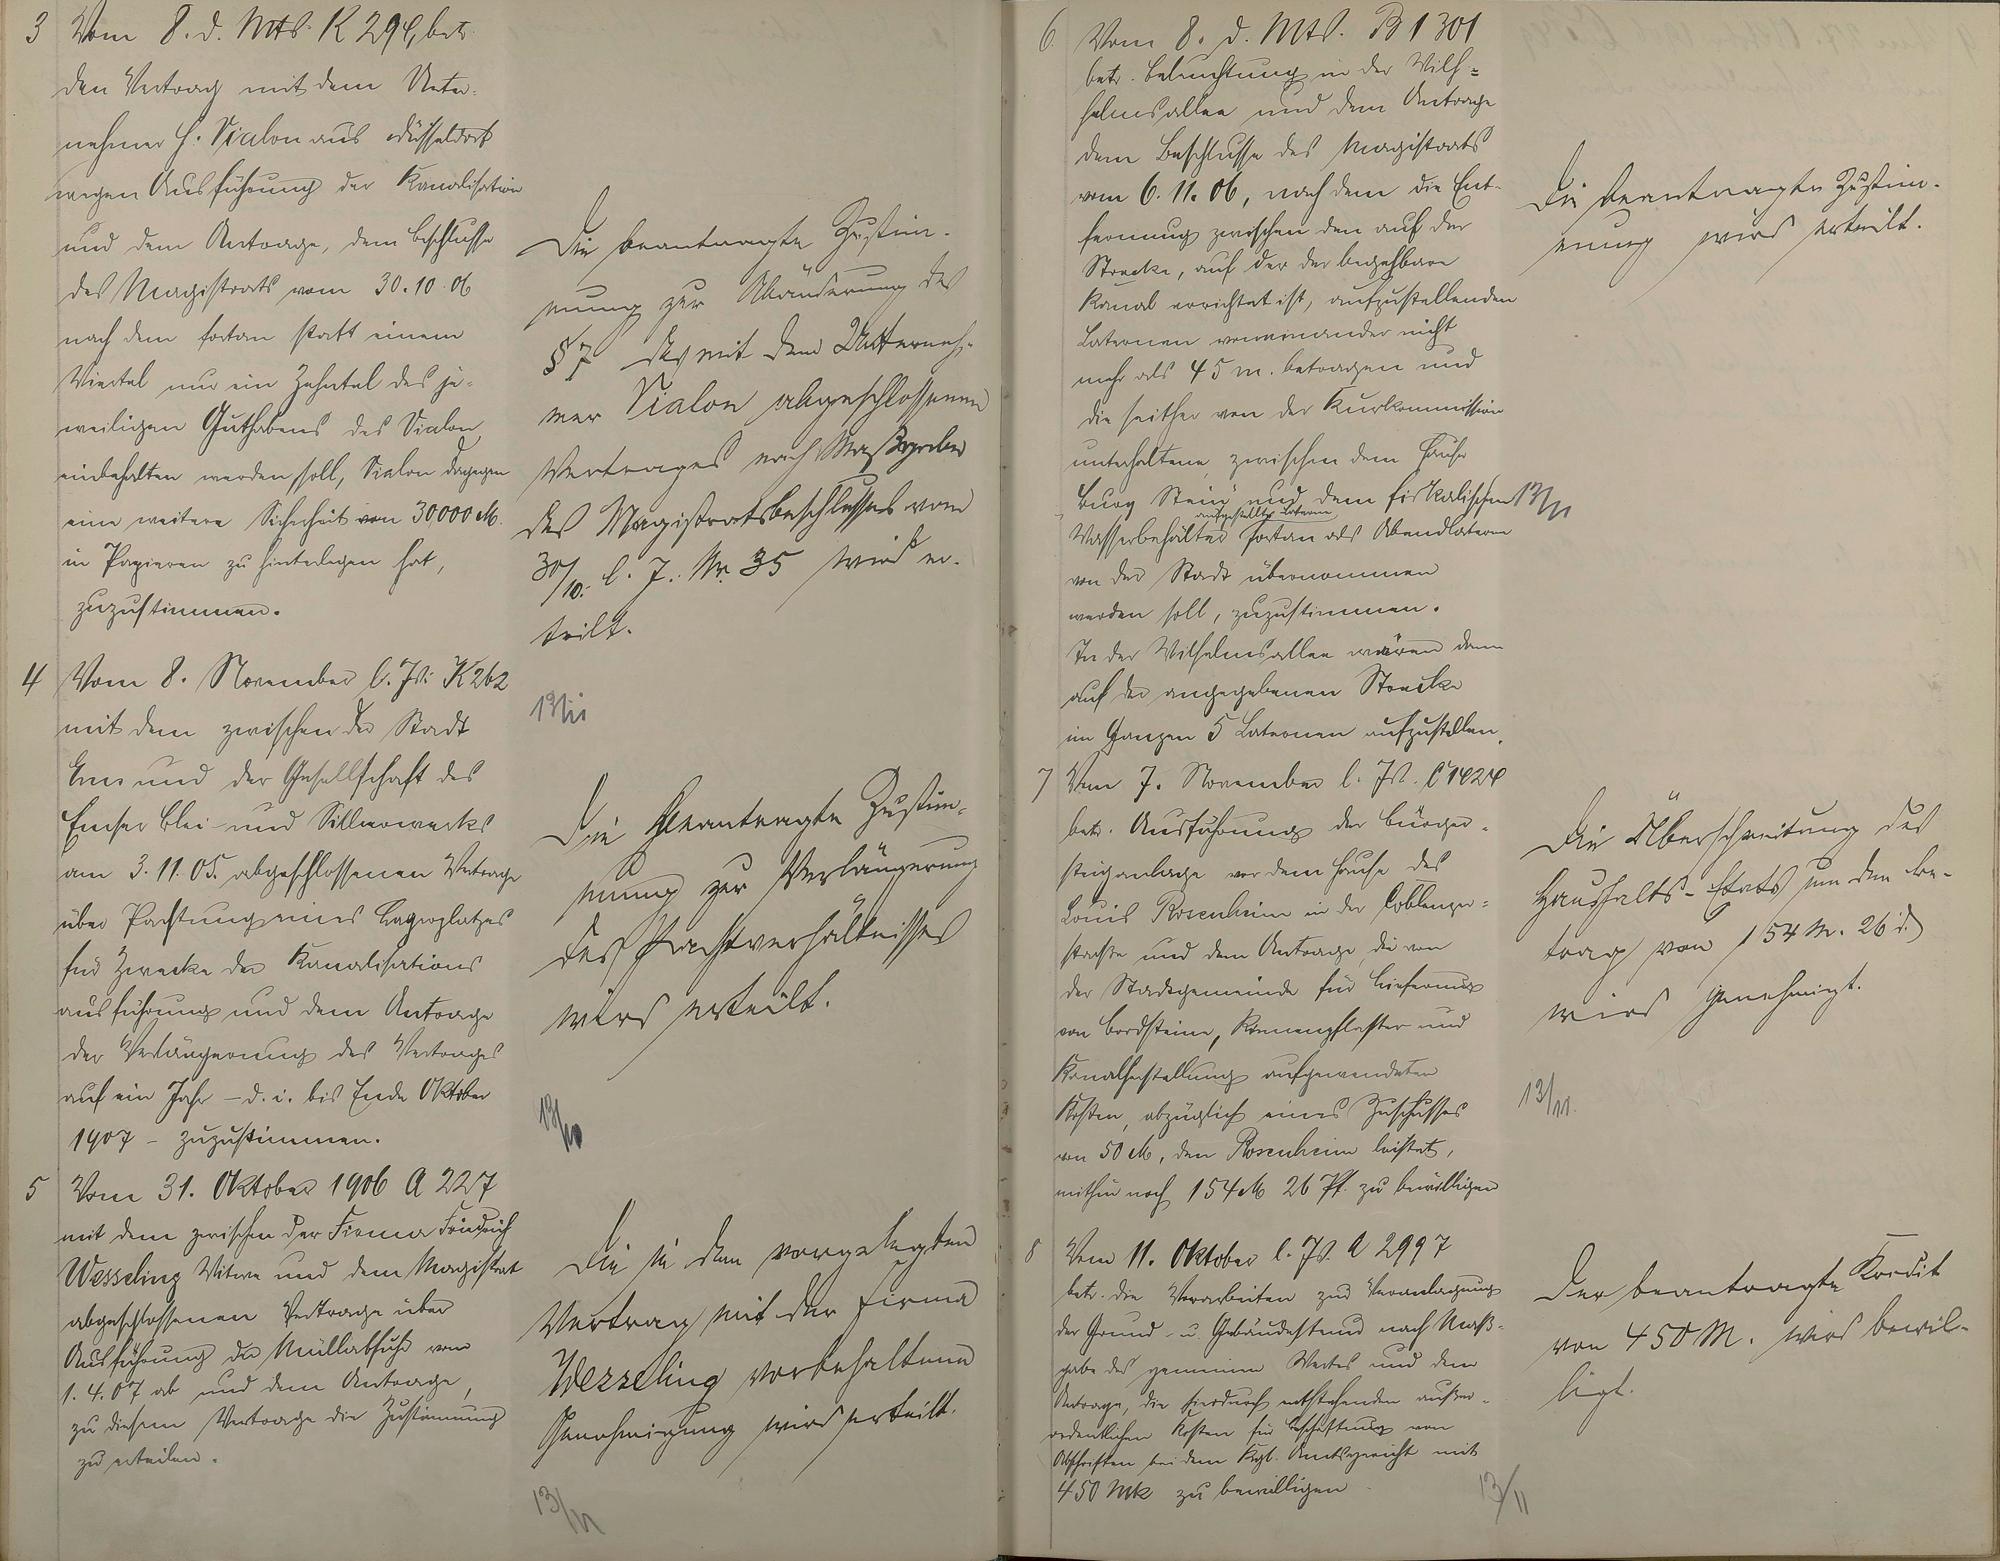 3 Vom 8. d. Mts. K 294, betr.
den Vertrag mit dem Unter-
nehmer H. Vialon aus Düsseldorf
wegen Ausführung der Kanalisation
und dem Antrage, dem Beschlusse
des Magistrats vom 30.10.06
nach dem fortan statt einem
Viertel nur ein Zehntel des je-
weiligen Guthabens des Vialon
einbehalten werden soll, Vialon dagegen
eine weitere Sicherheit von 30,000 M.
in Papieren zu hinterlegen hat,
zuzustimmen.
Die beantragte Zustim-
mung zur Abänderung des
§ 7 des mit dem Unterneh-
mer Vialon abgeschlossenen
Vertrages nach Maßgabe
des Magistratsbeschlusses vom
30/10. l. J. Nr. 35 wird er-
teilt.
13/11
4 Vom 8. November l. Js. K 262
mit dem zwischen der Stadt
Ems und der Gesellschaft des
Emser Blei- und Silberwerks
am 3.11.05. abgeschlossenen Vertrage
über Pachtung eines Lagerplatzes
für Zwecke der Kanalisations
ausführung und dem Antrage
der Verlängerung des Vertrages
auf ein Jahr – d. i. bis Ende Oktober
1907 – zuzustimmen.
Die beantragte Zustim-
mung zur Verlängerung
des Pachtverhältnisses
wird erteilt.
13/11
5 Vom 31. Oktober 1906 A 227
mit dem zwischen der Firma Friedrich
Wesseling Witwe und dem Magistrat
abgeschlossenen Vertrage über
Ausführung der Müllabfuhr vom
1.4.07 ab und dem Antrage,
zu diesem Vertrage die Zustimmung
zu erteilen.
Die in dem vorgelegten
Vertrag mit der Firma
Wesseling vorbehaltene
Genehmigung wird erteilt.
13/11
6. Vom 8. d. Mts. B 1301
betr. Beleuchtung in der Wilh-
helmsallee und dem Antrage
dem Beschlusse des Magistrats
vom 6.11.06, nach dem die Ent-
fernung zwischen den auf der
Strecke, auf der der begehbare
Kanal errichtet ist, aufzustellenden
Laternen voneinander nicht
mehr als 45 m. betragen und
die seither von der Kurkommission
unterhaltene, zwischen dem Hause
"Burg Stein" und dem fiskalischen
aufgestellte Laterne
Wasserbehälter fortan als Abendlaterne
von der Stadt übernommen
werden soll, zuzustimmen.
In der Wilhelmsallee wären dann
auf der angegebenen Strecke
im Ganzen 5 Laternen aufzustellen.
Die beantragte Zustim-
mung wird erteilt.
13/11
7 Vom 7. November l. Js. C 1424
betr. Ausführung der Bürger-
steiganlage vor dem Hause des
Louis Rosenheim in der Coblenzer-
straße und dem Antrage, die von
der Stadtgemeinde für Lieferung
von Bordsteine, Rinnenpflaster und
Kanalherstellung aufgewendeten
Kosten, abzüglich eines Zuschusses
von 50 M, den Rosenheim leistet,
mithin noch 154 M 26 Pf. zu bewilligen
Die Überschreitung des
Haushalts-Etats um den Be-
trag von 154 M. 26 d.
wird genehmigt.
13/11.
8 Vom 11. Oktober l. Js. A 2997
betr. die Vorarbeiten zur Veranlagung
der Grund- u. Gebäudesteuer nach Maß-
gabe des gemeinen Wertes und dem
Antrage, die hierdurch entstehenden außer-
ordentlichen Kosten für Beschaffung von
Abschriften bei dem Kgl. Amtsgericht mit
450 Mk zu bewilligen
Der beantragte Kredit
von 450 M. wird bewil-
ligt.
13/11